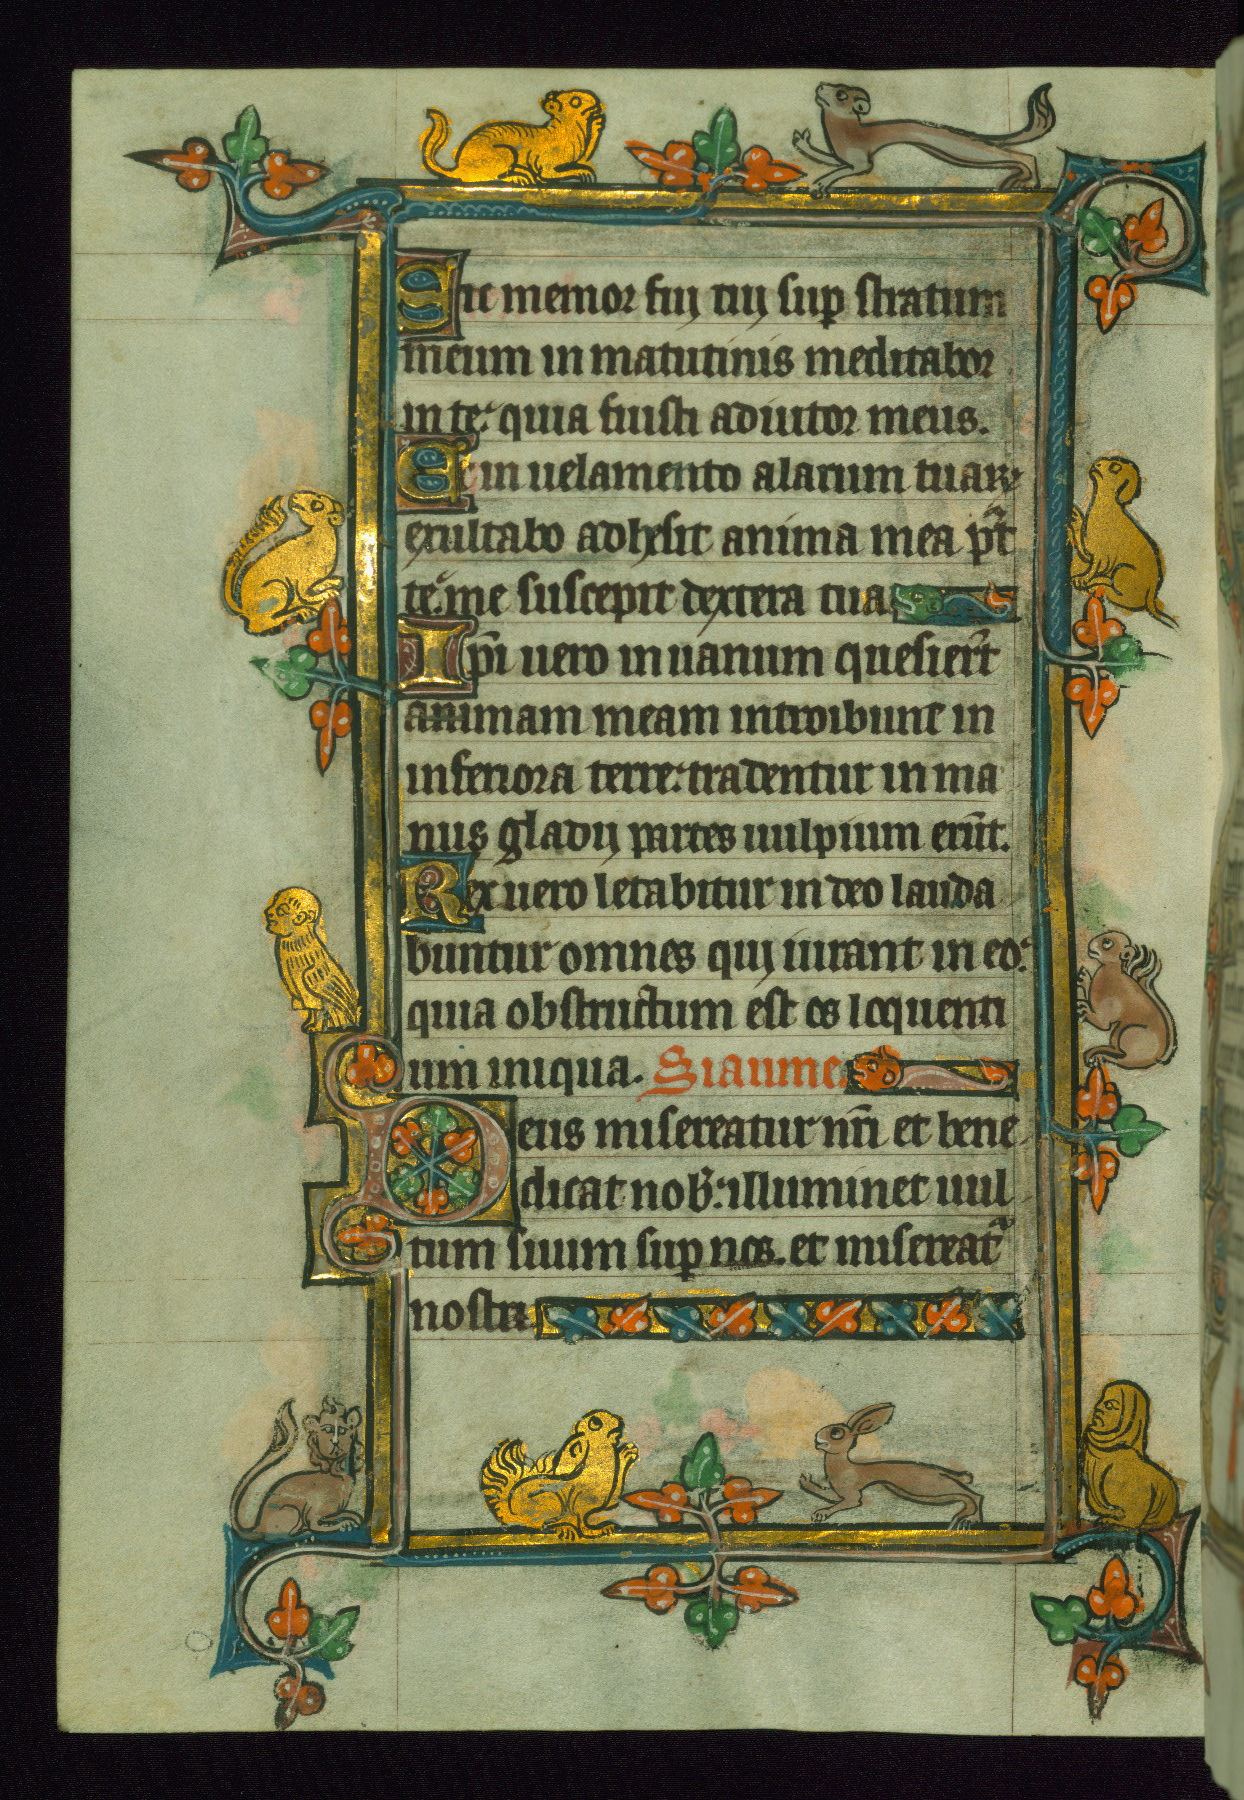 Sic memor fui tui sup stratum
meum in matutinis meditabor
in te: quia fuisti adiutor meus.
Et in uelamento alarum tuarꝝ
exultabo adhesit anima mea pꝰt
te: me suscepit dextera tua
Ipi uero in uanum quesiert
animam meam introibunt in
inferiora terre: tradentur in ma
nus gladij partes uulpium erut.
Rex uero letabitur in deo lauda
buntur omnes qui iurant in eo:
quia obstructum est os loquenti
um iniqua. Siaume
Deus misereatur nri et bene
dicat nob: illuminet uul
tum suum sup nos. et misereatᷣ
nostri